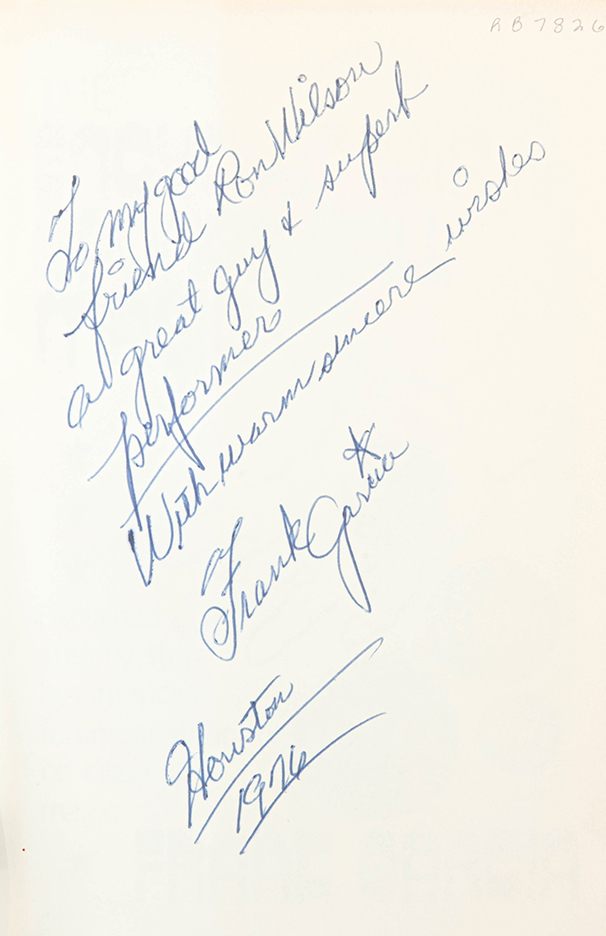 RB7826
To my good
friend Ron Wilson
a great guy & superb
performer
With warm sincere wishes
Frank Garcia
Houston
1976